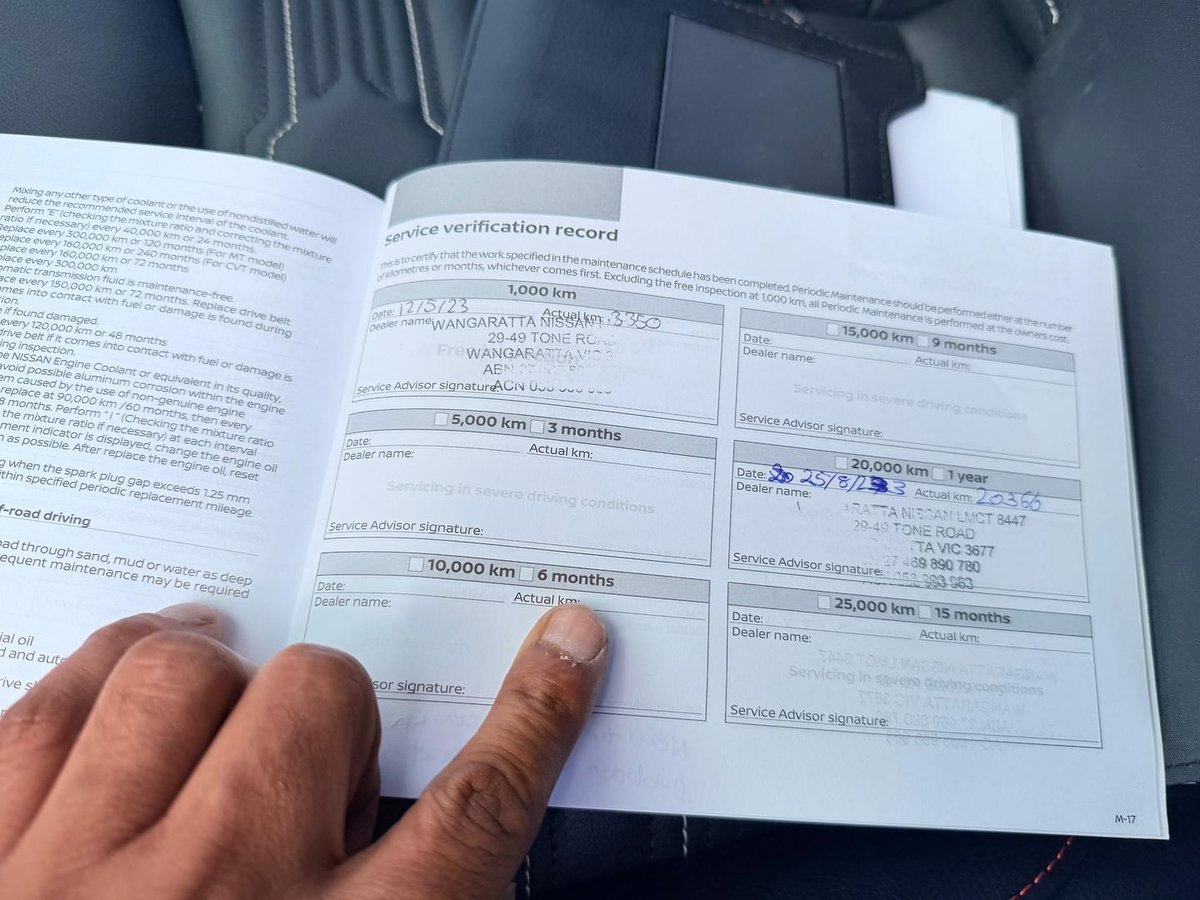 Mixing any other type of coolant or the use of nondistilled water will
reduce the recommended service interval of the coolant.
Perform "E" (checking the mixture ratio and correcting the mixture
ratio if necessary) every 40,000 km or 24 months.
Replace every 300,000 km or 120 months (For MT model)
eplace every 160,000 km or 240 months (For CVT model)
place every 160,000 km or 72 months
place every 300,000 km
omatic transmission fluid is maintenance-free.
ace every 150,000 km or 72 months. Replace drive belt
omes into contact with fuel or damage is found during
tion.
e if found damaged.
every 120,000 km or 48 months
drive belt if it comes into contact with fuel or damage is
ng inspection.
e NISSAN Engine Coolant or equivalent in its quality,
avoid possible aluminum corrosion within the engine
em caused by the use of non-genuine engine
replace at 90,000 km /60 months, then every
8 months. Perform "I" (Checking the mixture ratio
the mixture ratio if necessary) at each interval
ment indicator is displayed, change the engine oil
n as possible. After replace the engine oil, reset
g when the spark plug gap exceeds 1.25 mm
ithin specified periodic replacement mileage.
f-road driving
oad through sand, mud or water as deep
equent maintenance may be required
ial oil
d and auto
rive s
Service verification record
This is to certify that the work specified in the maintenance schedule has been completed. Periodic Maintenance should be performed either at the number
of kilometres or months, whichever comes first. Excluding the free inspection at 1,000 km, all Periodic Maintenance is performed at the owners cost.
1,000 km
Date: 12/5/23 Actual km: 3350
Dealer name: WANGARATTA NISSAN
29-49 TONE ROAD
WANGARATTA VIC 3
ABN
Service Advisor signature: ACN
5,000 km 3 months
Date: Actual km:
Dealer name:
Servicing in severe driving conditions
Service Advisor signature:
10,000 km 6 months
Date: Actual km:
Dealer name:
sor signature:
15,000 km 9 months
Date: Actual km:
Dealer name:
Servicing in severe driving conditions
Service Advisor signature:
20,000 km 1 year
Date: 25/8/23 Actual km: 20366
Dealer name: RATTA NISSAN LMCT 8447
29-49 TONE ROAD
TA VIC 3677
27 469 890 780
Service Advisor signature:
25,000 km 15 months
Date: Actual km:
Dealer name:
Servicing in severe driving conditions
Service Advisor signature:
M-17